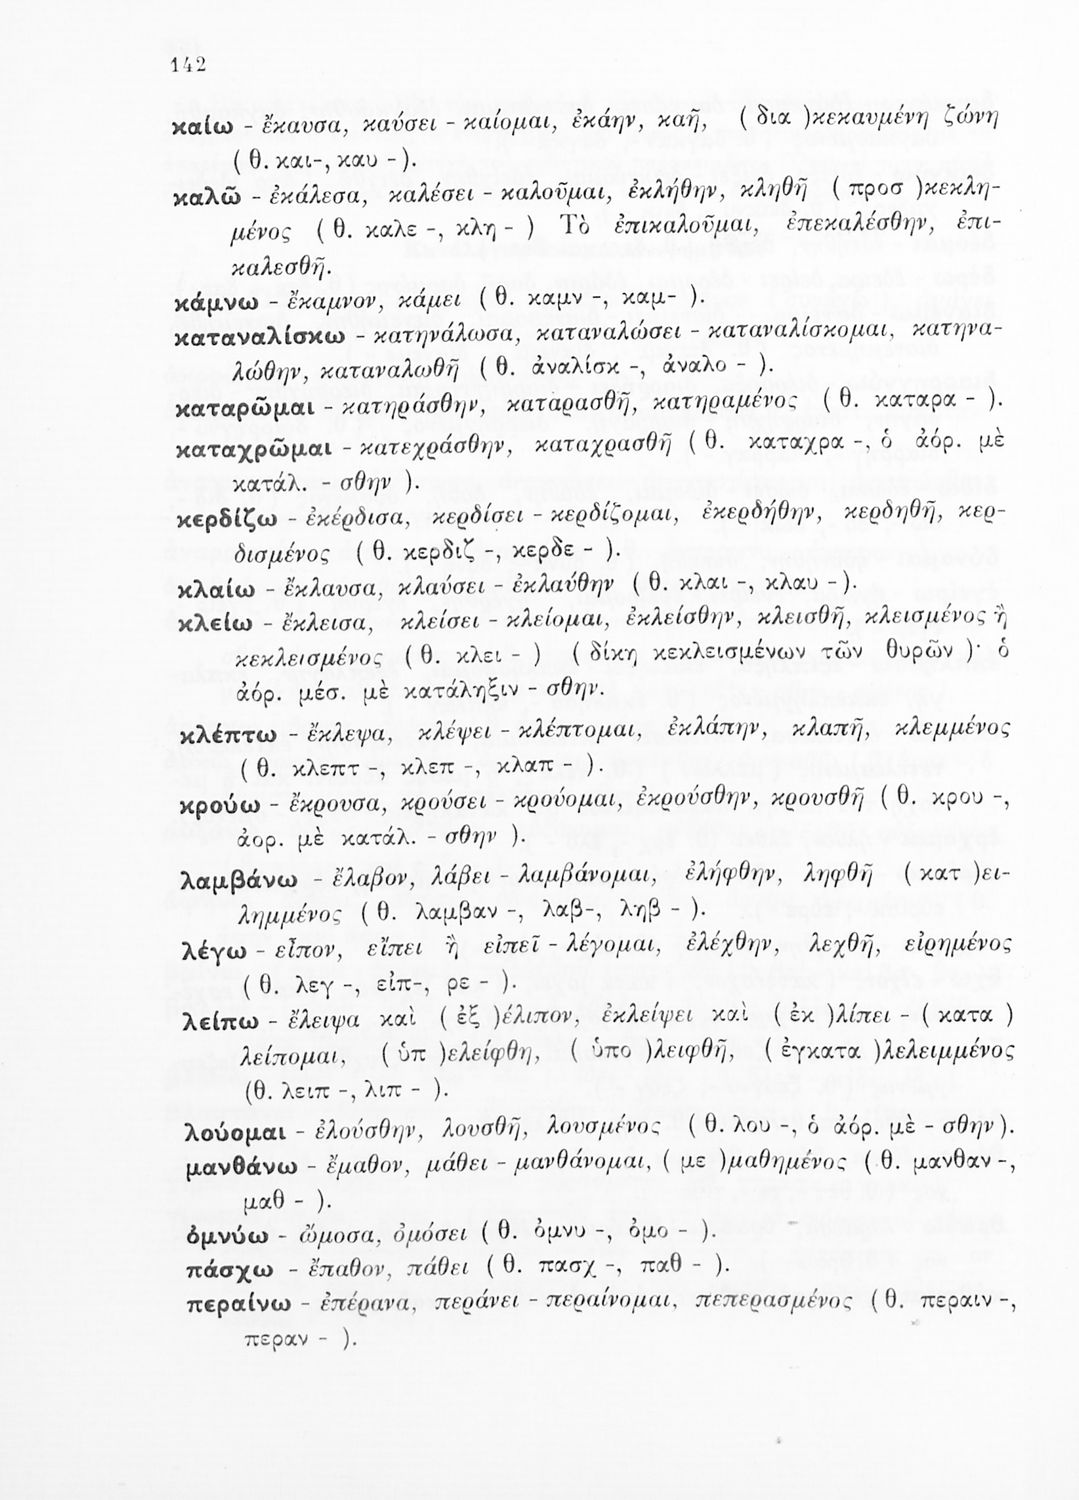 142
καίω - ἔκαυσα, καύσει - καίομαι, ἐκάην, καῆ, ( δια )κεκαυμένη ζώνη
( θ. και-, καυ - ).
καλῶ - ἐκάλεσα, καλέσει - καλοῦμαι, ἐκλήθην, κληθῆ ( προσ )κεκλη-
μένος ( θ. καλε -, κλη - ) Τὸ ἐπικαλοῦμαι, ἐπεκαλέσθην, ἐπι-
καλεσθῆ.
κάμνω - ἔκαμνον, κάμει ( θ. καμν -, καμ- ).
καταναλίσκω - κατηνάλωσα, καταναλώσει - καταναλίσκομαι, κατηνα-
λώθην, καταναλωθῆ ( θ. ἀναλίσκ -, ἀναλο - ).
καταρῶμαι - κατηράσθην, καταρασθῆ, κατηραμένος ( θ. καταρα - ).
καταχρῶμαι - κατεχράσθην, καταχρασθῆ ( θ. καταχρα -, ὁ ἀόρ. μὲ
κατάλ. - σθην ).
κερδίζω - ἐκέρδισα, κερδίσει - κερδίζομαι, ἐκερδήθην, κερδηθῆ, κερ-
δισμένος ( θ. κερδιζ -, κερδε - ).
κλαίω - ἔκλαυσα, κλαύσει - ἐκλαύθην ( θ. κλαι -, κλαυ - ).
κλείω - ἔκλεισα, κλείσει - κλείομαι, ἐκλείσθην, κλεισθῆ, κλεισμένος ἢ
κεκλεισμένος ( θ. κλει - ) ( δίκη κεκλεισμένων τῶν θυρῶν )· ὁ
ἀόρ. μέσ. μὲ κατάληξιν - σθην.
κλέπτω - ἔκλεψα, κλέψει - κλέπτομαι, ἐκλάπην, κλαπῆ, κλεμμένος
( θ. κλεπτ -, κλεπ -, κλαπ - ).
κρούω - ἔκρουσα, κρούσει - κρούομαι, ἐκρούσθην, κρουσθῆ ( θ. κρου -,
ἀορ. μὲ κατάλ. - σθην ).
λαμβάνω - ἔλαβον, λάβει - λαμβάνομαι, ἐλήφθην, ληφθῆ ( κατ )ει-
λημμένος ( θ. λαμβαν -, λαβ-, ληβ - ).
λέγω - εἶπον, εἴπει ἢ εἰπεῖ - λέγομαι, ἐλέχθην, λεχθῆ, εἰρημένος
( θ. λεγ -, εἰπ-, ρε - ).
λείπω - ἔλειψα καὶ ( ἐξ )έλιπον, ἐκλείψει καὶ ( ἐκ )λίπει - ( κατα )
λείπομαι, ( ὑπ )ελείφθη, ( ὑπο )λειφθῆ, ( ἐγκατα )λελειμμένος
(θ. λειπ -, λιπ - ).
λούομαι - ἐλούσθην, λουσθῆ, λουσμένος ( θ. λου -, ὁ ἀόρ. μὲ - σθην ).
μανθάνω - ἔμαθον, μάθει - μανθάνομαι, ( με )μαθημένος ( θ. μανθαν -,
μαθ - ).
ὀμνύω - ὤμοσα, ὀμόσει ( θ. ὀμνυ -, ὀμο - ).
πάσχω - ἔπαθον, πάθει ( θ. πασχ -, παθ - ).
περαίνω - ἐπέρανα, περάνει - περαίνομαι, πεπερασμένος ( θ. περαιν -,
περαν - ).